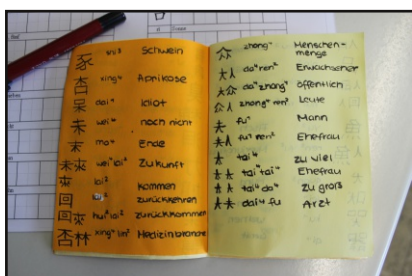 豕 shi³ Schwein
杏 xing⁴ Aprikose
呆 Idiot
未 wei⁴ noch nicht
末 mo⁴ Ende
未來 wei⁴ lai² Zukunft
來 lai² kommen
回 zurückkehren
回來 hui² lai² zurückkommen
杏林 xing⁴ lin² Medizinbranche
众 zhong⁴ Menschen-
menge
大人 da⁴ ren² Erwachsener
大众 da⁴ zhong⁴ öffentlich
众人 zhong⁴ ren² Leute
夫 fu¹ Mann
夫人 fu¹ ren² Ehefrau
太 tai⁴ zu viel
太太 tai⁴ tai⁴ Ehefrau
太大 tai⁴ da⁴ zu groß
大夫 dai⁴ fu Arzt